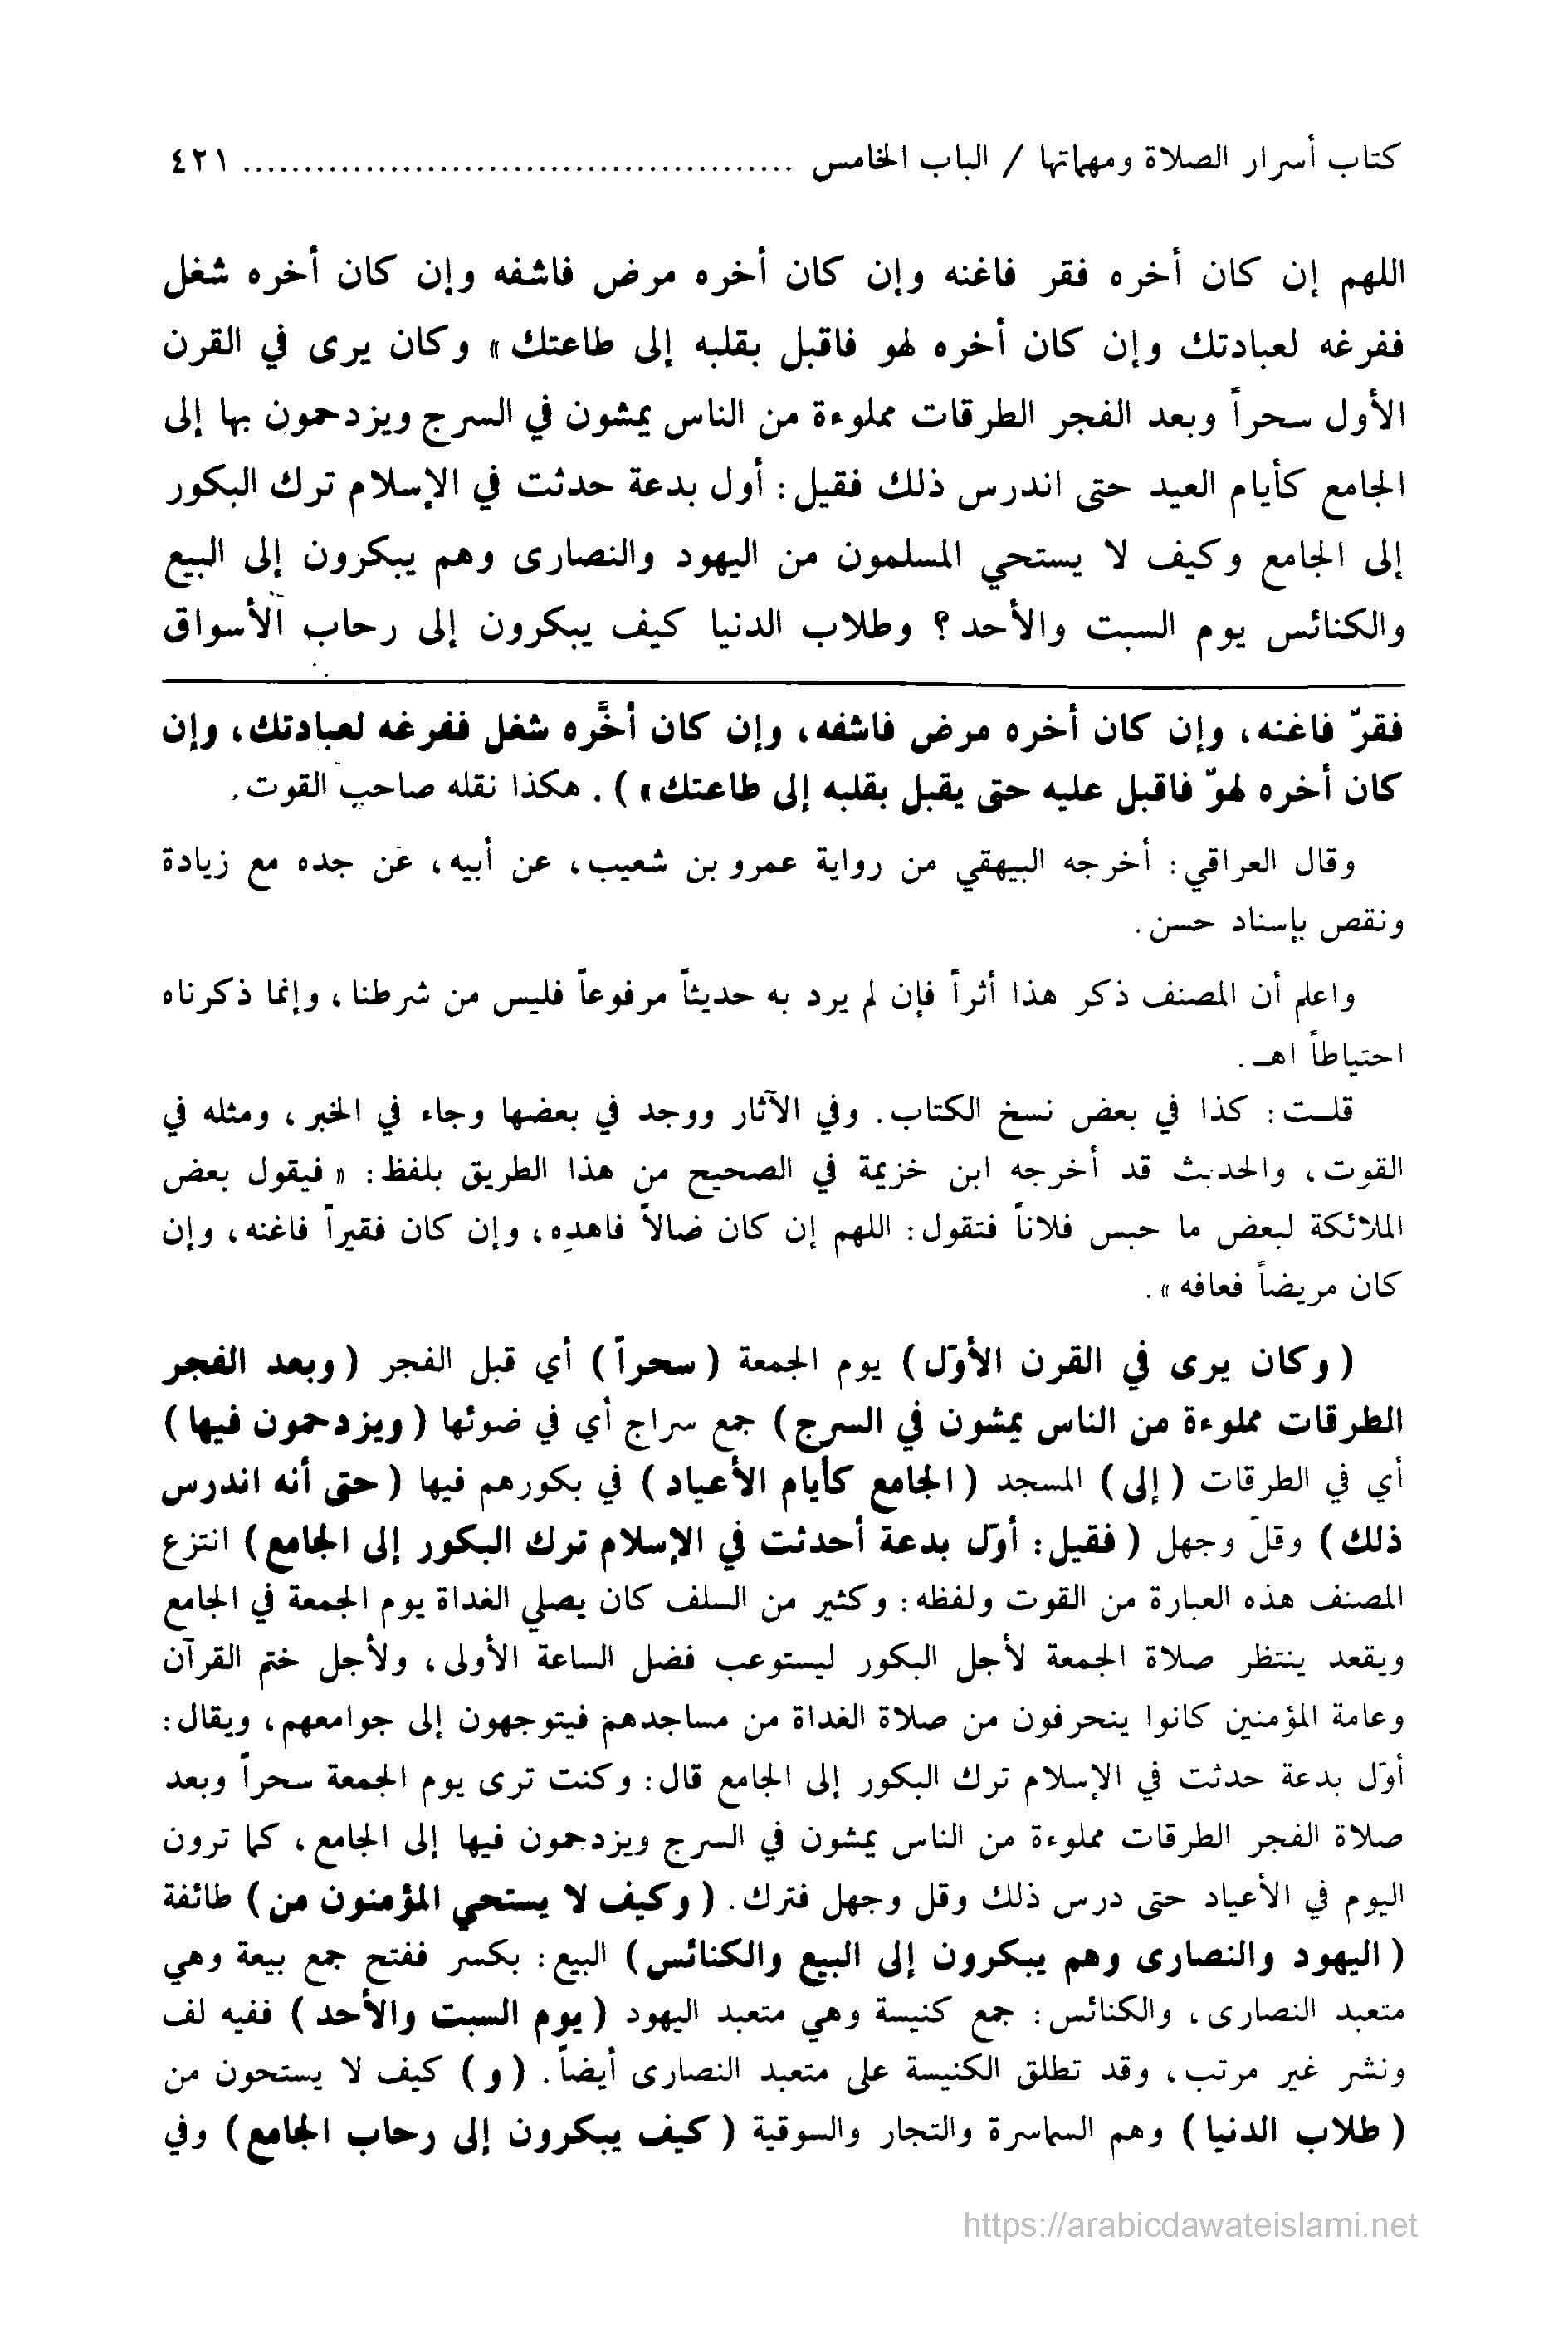 كتاب أسرار الصلاة ومهماتها / الباب الخامس ............................................. ٤٢١
اللهم إن كان أخره فقر فاغنه وإن كان أخره مرض فاشفه وإن كان أخره شغل
ففرغه لعبادتك وإن كان أخره لهو فاقبل بقلبه إلى طاعتك» وكان يرى في القرن
الأول سحراً وبعد الفجر الطرقات مملوءة من الناس يمشون في السرج ويزدحمون بها إلى
الجامع كأيام العيد حتى اندرس ذلك فقيل: أول بدعة حدثت في الإسلام ترك البكور
إلى الجامع وكيف لا يستحي المسلمون من اليهود والنصارى وهم يبكرون إلى البيع
والكنائس يوم السبت والأحد؟ وطلاب الدنيا كيف يبكرون إلى رحاب الأسواق
فقرّ فاغنه، وإن كان أخره مرض فاشفه، وإن كان أخَّره شغل ففرغه لعبادتك، وإن
كان أخره لهوّ فاقبل عليه حتى يقبل بقلبه إلى طاعتك»). هكذا نقله صاحب القوت.
وقال العراقي: أخرجه البيهقي من رواية عمرو بن شعيب، عن أبيه، عن جده مع زيادة
ونقص بإسناد حسن.
واعلم أن المصنف ذكر هذا أثراً فإن لم يرد به حديثاً مرفوعاً فليس من شرطنا، وإنما ذكرناه
احتياطاً اهـ.
قلـت: كذا في بعض نسخ الكتاب. وفي الآثار ووجد في بعضها وجاء في الخبر، ومثله في
القوت، والحديث قد أخرجه ابن خزيمة في الصحيح من هذا الطريق بلفظ: «فيقول بعض
الملائكة لبعض ما حبس فلاناً فتقول: اللهم إن كان ضالاً فاهده، وإن كان فقيراً فاغنه، وإن
كان مريضاً فعافه».
(وكان يرى في القرن الأوّل) يوم الجمعة (سحراً) أي قبل الفجر (وبعد الفجر
الطرقات مملوءة من الناس يمشون في السرج) جمع سراج أي في ضوئها (ويزدحمون فيها)
أي في الطرقات (إلى) المسجد (الجامع كأيام الأعياد) في بكورهم فيها (حتى أنه اندرس
ذلك) وقلّ وجهل (فقيل: أوّل بدعة أحدثت في الإسلام ترك البكور إلى الجامع) انتزع
المصنف هذه العبارة من القوت ولفظه: وكثير من السلف كان يصلي الغداة يوم الجمعة في الجامع
ويقعد ينتظر صلاة الجمعة لأجل البكور ليستوعب فضل الساعة الأولى، ولأجل ختم القرآن
وعامة المؤمنين كانوا ينحرفون من صلاة الغداة من مساجدهم فيتوجهون إلى جوامعهم، ويقال:
أوّل بدعة حدثت في الإسلام ترك البكور إلى الجامع قال: وكنت ترى يوم الجمعة سحراً وبعد
صلاة الفجر الطرقات مملوءة من الناس يمشون في السرج ويزدحمون فيها إلى الجامع، كما ترون
اليوم في الأعياد حتى درس ذلك وقل وجهل فترك. (وكيف لا يستحي المؤمنون من) طائفة
(اليهود والنصارى وهم يبكرون إلى البيع والكنائس) البيع: بكسر ففتح جمع بيعة وهي
متعبد النصارى، والكنائس: جمع كنيسة وهي متعبد اليهود (يوم السبت والأحد) ففيه لف
ونشر غير مرتب، وقد تطلق الكنيسة على متعبد النصارى أيضاً. (و) كيف لا يستحون من
(طلاب الدنيا) وهم السماسرة والتجار والسوقية (كيف يبكرون إلى رحاب الجامع) وفي
https://arabicdawateislami.net